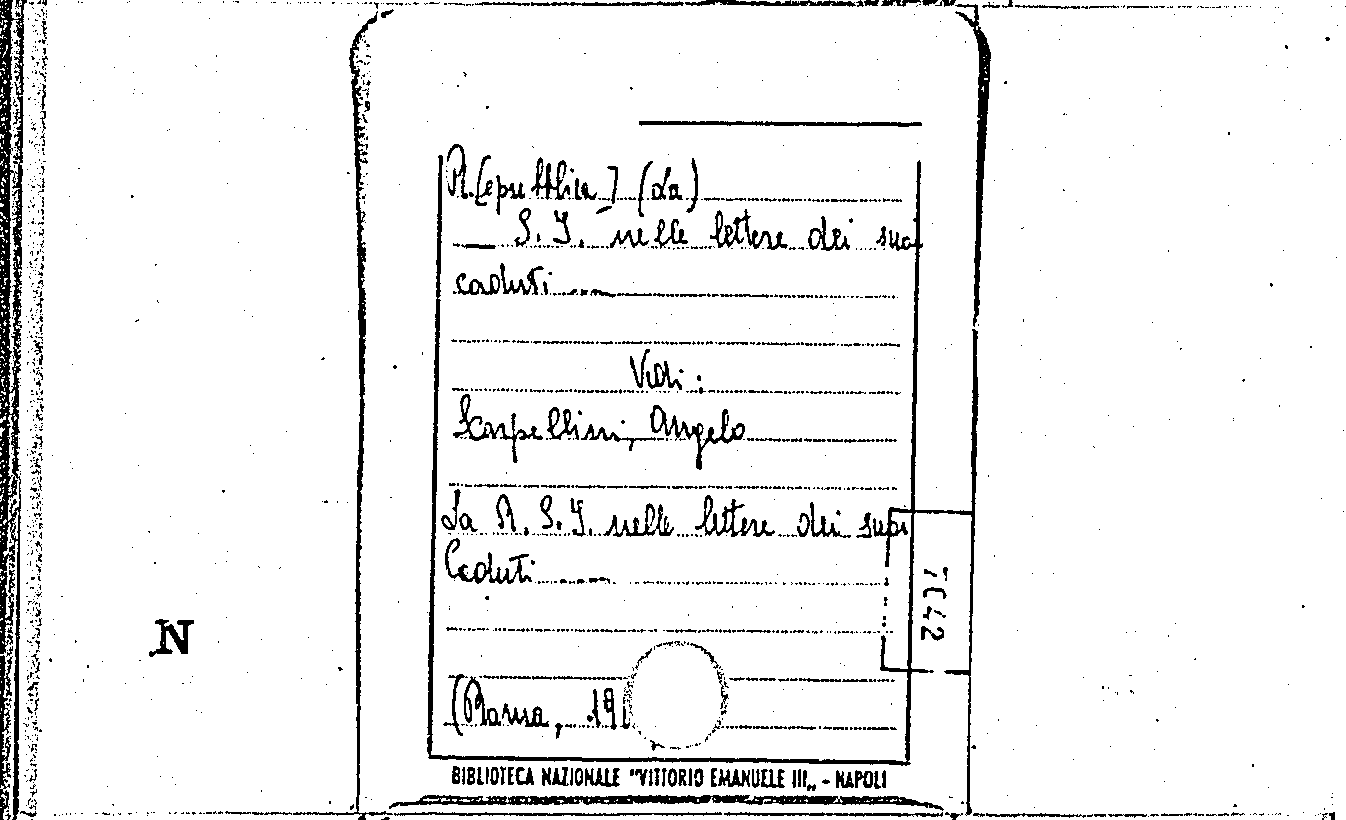 R.[epubblica] (La)
— S.I. nelle lettere dei suoi
caduti......
Vedi:
Scarpellini, Angelo
La R.S.I. nelle lettere dei suoi
Caduti......
(Roma, 19
BIBLIOTECA NAZIONALE "VITTORIO EMANUELE III„ - NAPOLI
N